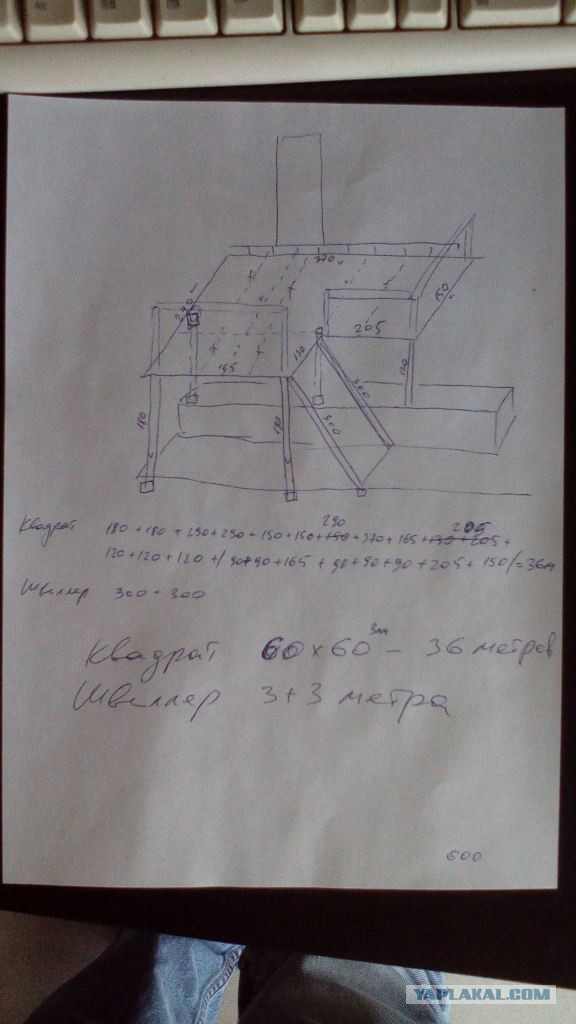 370
240
165
205
150
130
300
300
180
180
120
290 205
Квадрат 180+180+290+290+150+150+150+370+165+130+205+
120+120+120+/90+90+165+90+90+90+205+150/=36м
Швеллер 300+300
Квадрат 60х60 3мм - 36 метров
Швеллер 3+3 метра
600
YAPLAKAL.COM